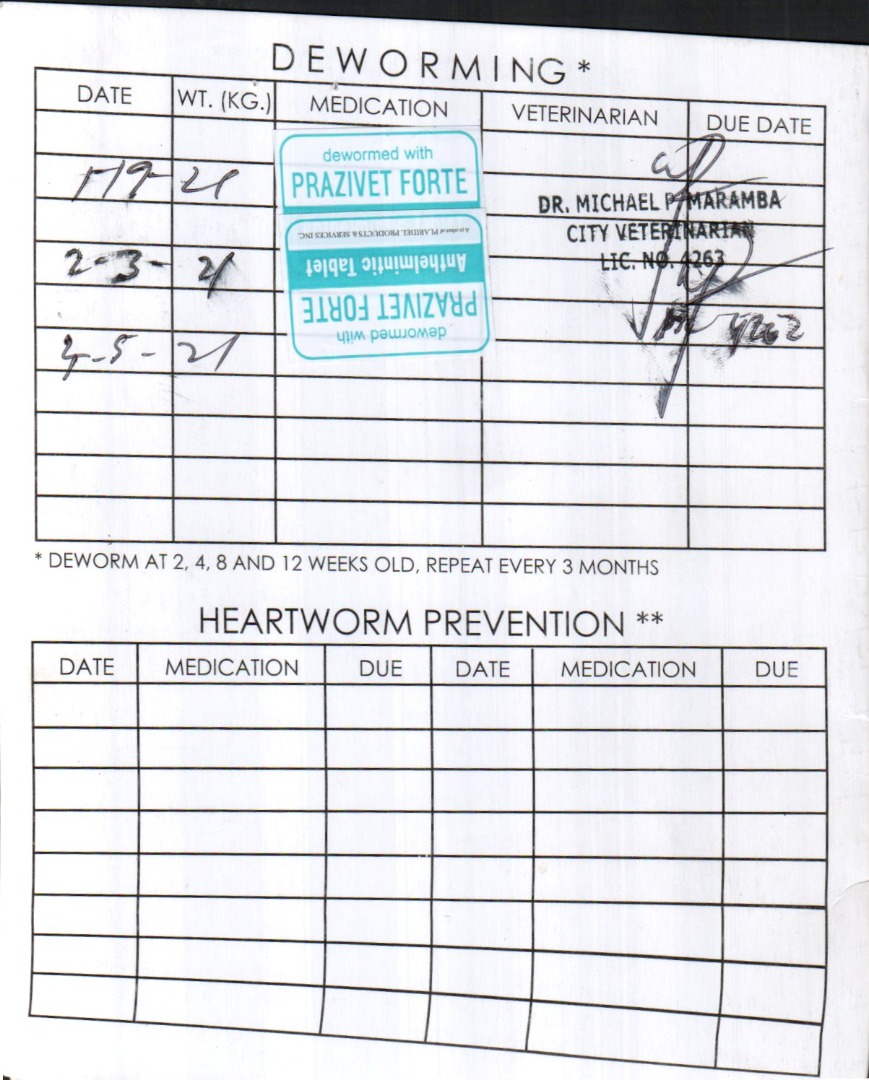 DEWORMING *
DATE WT. (KG.) MEDICATION VETERINARIAN DUE DATE
dewormed with
PRAZIVET FORTE
1-19-21
DR. MICHAEL P. MARAMBA
CITY VETERINARIAN
LIC. NO. 4263
A product of PLARIDEL PRODUCTS & SERVICES INC.
Anthelmintic Tablet
PRAZIVET FORTE
dewormed with
2-3-21
-5-21
* DEWORM AT 2, 4, 8 AND 12 WEEKS OLD, REPEAT EVERY 3 MONTHS
HEARTWORM PREVENTION **
DATE MEDICATION DUE DATE MEDICATION DUE